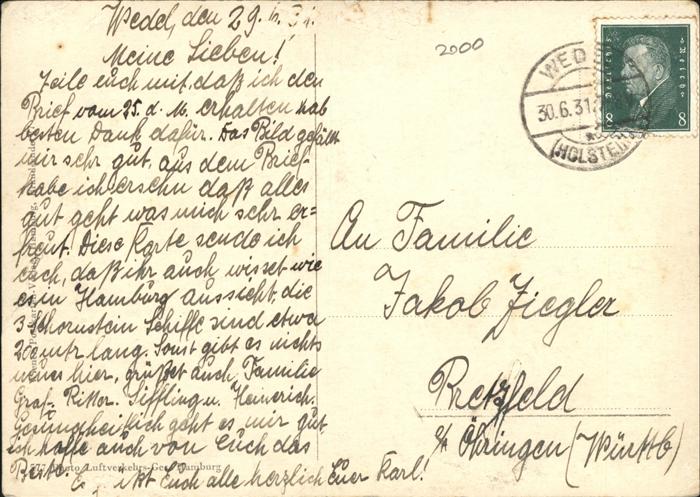 Wedel, den 29.6.31.
Meine Lieben!
Teile euch mit, daß ich den
Brief vom 25. d. M. erhalten hab
besten Dank dafür. Das Bild gefällt
mir sehr gut, aus dem Brief
habe ich ersehn daß alles
gut geht was mich sehr er=
freut. Diese Karte sende ich
euch, daß ihr auch wisset wie
es in Hamburg aussicht, die
3 Schornstein Schiffe sind etwa
200 mtr lang. Sonst gibt es nichts
neues hier, grüßet auch Familie
Graf. Rittor. Siffling u. Heinerich.
Gesundheitlich geht es mir gut
ich hoffe auch von Euch das
Beste. Es Euch alle herzlich Euer Karl!
An Familie
Jakob Ziegler
Pretzfeld
Öhringen (Württb)
2000
WEDEL
30.6.31
(HOLSTEIN)
Deutsches Reich
8 8
577 Photo Luftverkehrs-Ges. Hamburg